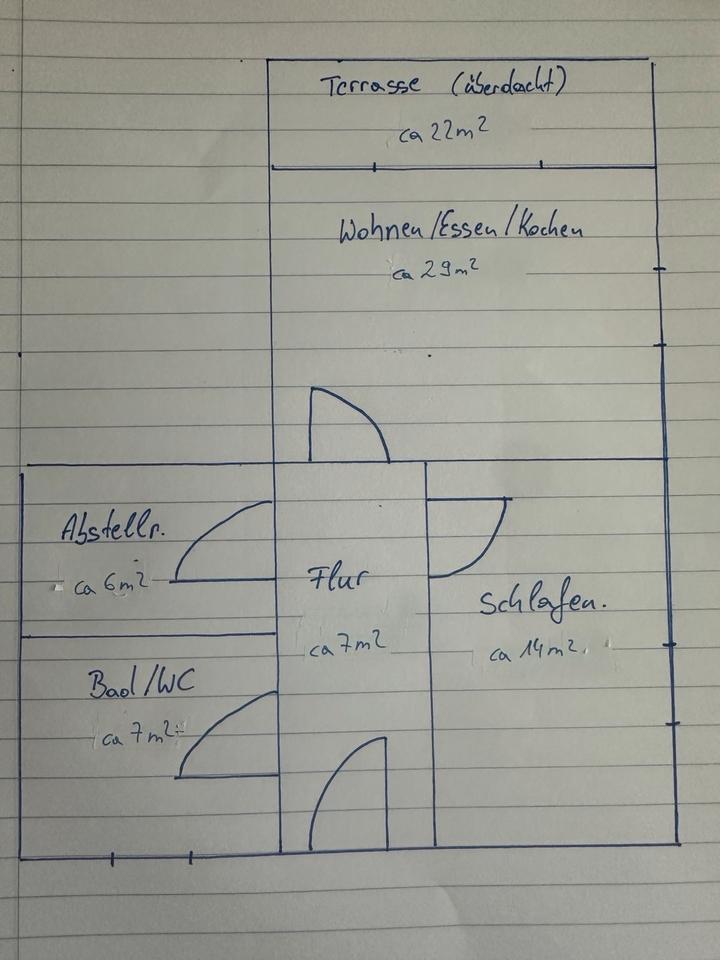 Terrasse (überdacht)
ca 22m²
Wohnen/Essen/Kochen
ca 29m²
Abstellr.
ca 6m²
Flur
ca 7m²
Schlafen.
ca 14m².
Bad/WC
ca 7m²